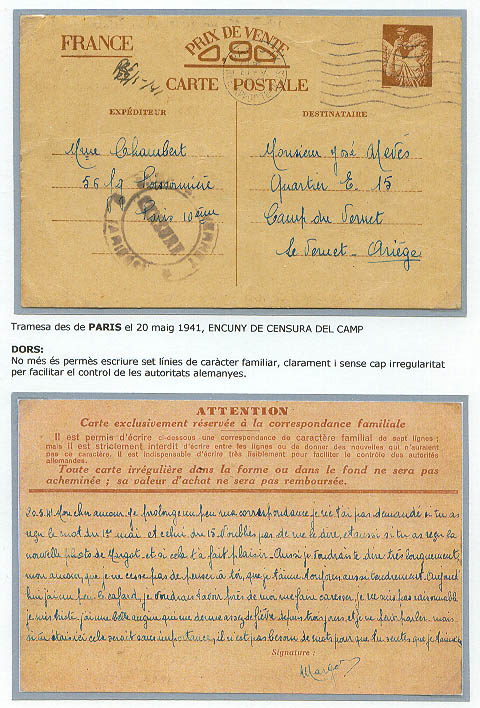 FRANCE
PRIX DE VENTE
0,90
CARTE POSTALE
EXPÉDITEUR
DESTINATAIRE
Mme Chambert
56 fg Poissonnière
Paris 10ème
Monsieur José Nevés
Quartier E. 15
Camp du Vernet
le Vernet - Ariége
Tramesa des de PARIS el 20 maig 1941, ENCUNY DE CENSURA DEL CAMP
DORS:
No més és permès escriure set línies de caràcter familiar, clarament i sense cap irregularitat
per facilitar el control de les autoritats alemanyes.
ATTENTION
Carte exclusivement réservée à la correspondance familiale
Il est permis d'écrire ci-dessous une correspondance de caractère familial de sept lignes;
mais il est strictement interdit d'écrire entre les lignes ou de donner des nouvelles qui n'auraient
pas ce caractère. Il est indispensable d'écrire très lisiblement pour faciliter le contrôle des autorités
allemandes.
Toute carte irrégulière dans la forme ou dans le fond ne sera pas
acheminée; sa valeur d'achat ne sera pas remboursée.
20.5.41 Mon chin amour. Je prolonge un peu ma correspondance je t'ai pas demandé si tu as
reçu le mot du 1er mai et celui du 15. N'oublies pas de me le dire, et aussi si tu as reçu la
nouvelle photo de Margot et si cela t'a fait plaisir. Aussi je voudrais te dire très longuement,
mon amour que je ne cesse pas de penser à toi, que je t'aime toujours aussi tendrement. Aujourd'
hui j'ai un peu le cafard, je voudrais t'avoir près de moi, me faire caresser, je ne suis pas raisonnable
je suis triste j'ai une angine qui me donne assez de fièvre depuis trois jours et je ne peux parler. mais
si tu étais ici cela serait sans importance, il n'est pas besoin de mots pour que tu sentes que je t'aime
Signature :
Margot